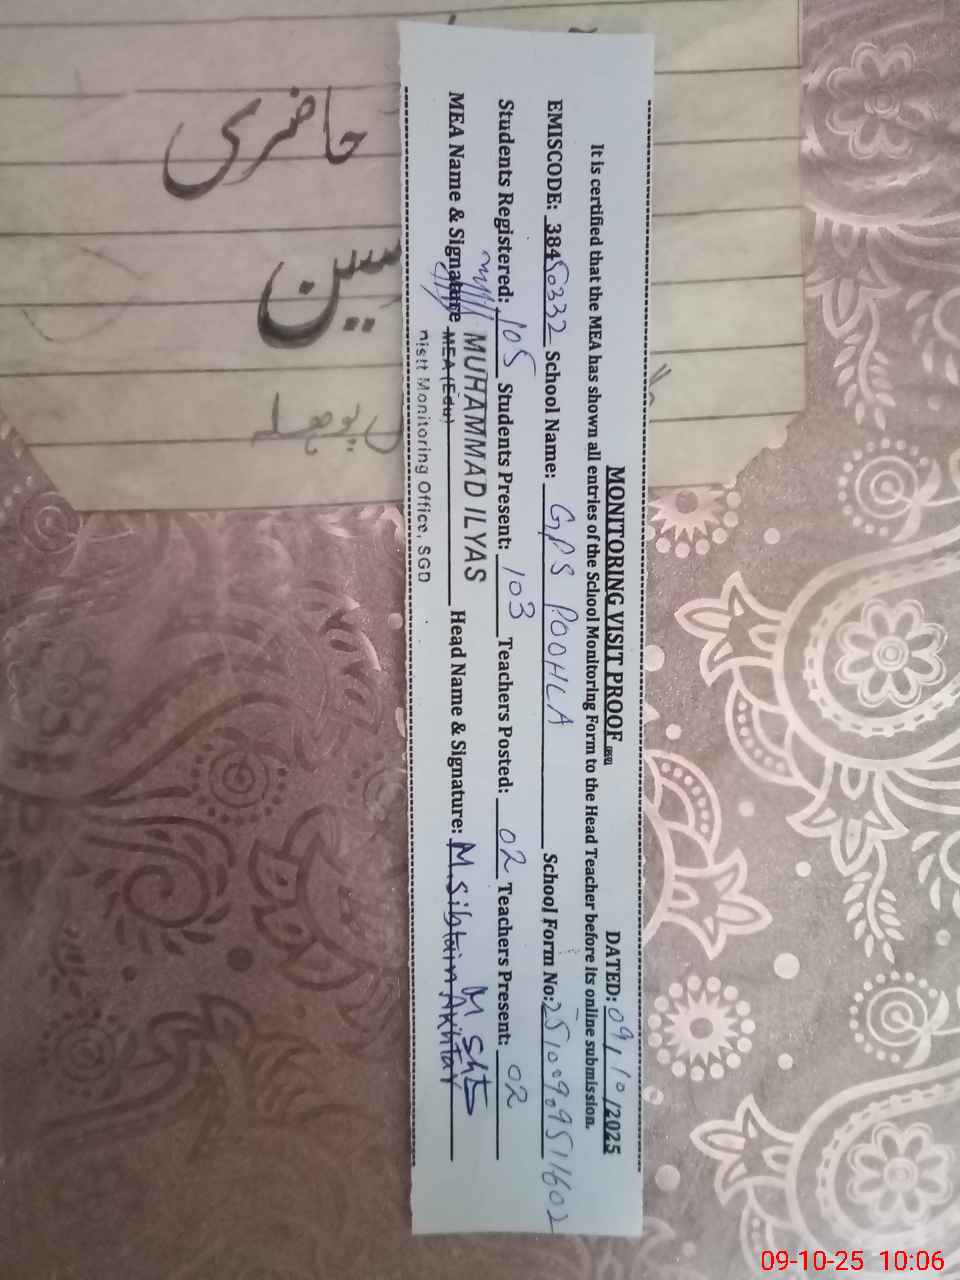 حاضری
پوہلہ
MONITORING VISIT PROOF DATED: 09/10/2025
It is certified that the MEA has shown all entries of the School Monitoring Form to the Head Teacher before its online submission.
EMISCODE: 38450332 School Name: GPS POOHLA School Form No: 25100909511602
Students Registered: 105 Students Present: 103 Teachers Posted: 02 Teachers Present: 02
MEA Name & Signature MUHAMMAD ILYAS Head Name & Signature: M.sibtain Akhtar
MEA (Edu)
Distt Monitoring Office, SGD
09-10-25 10:06